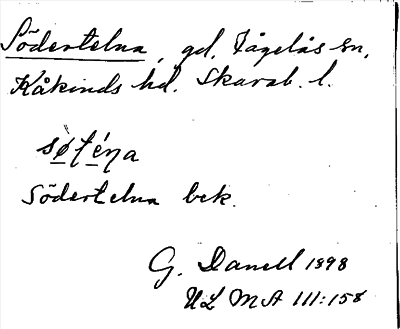 Södertelna, gd, Fågelås sn,
Kåkinds hd. Skarab. l.
søténa
Södertelna bek.
G. Danell 1898
ULMA 111:158